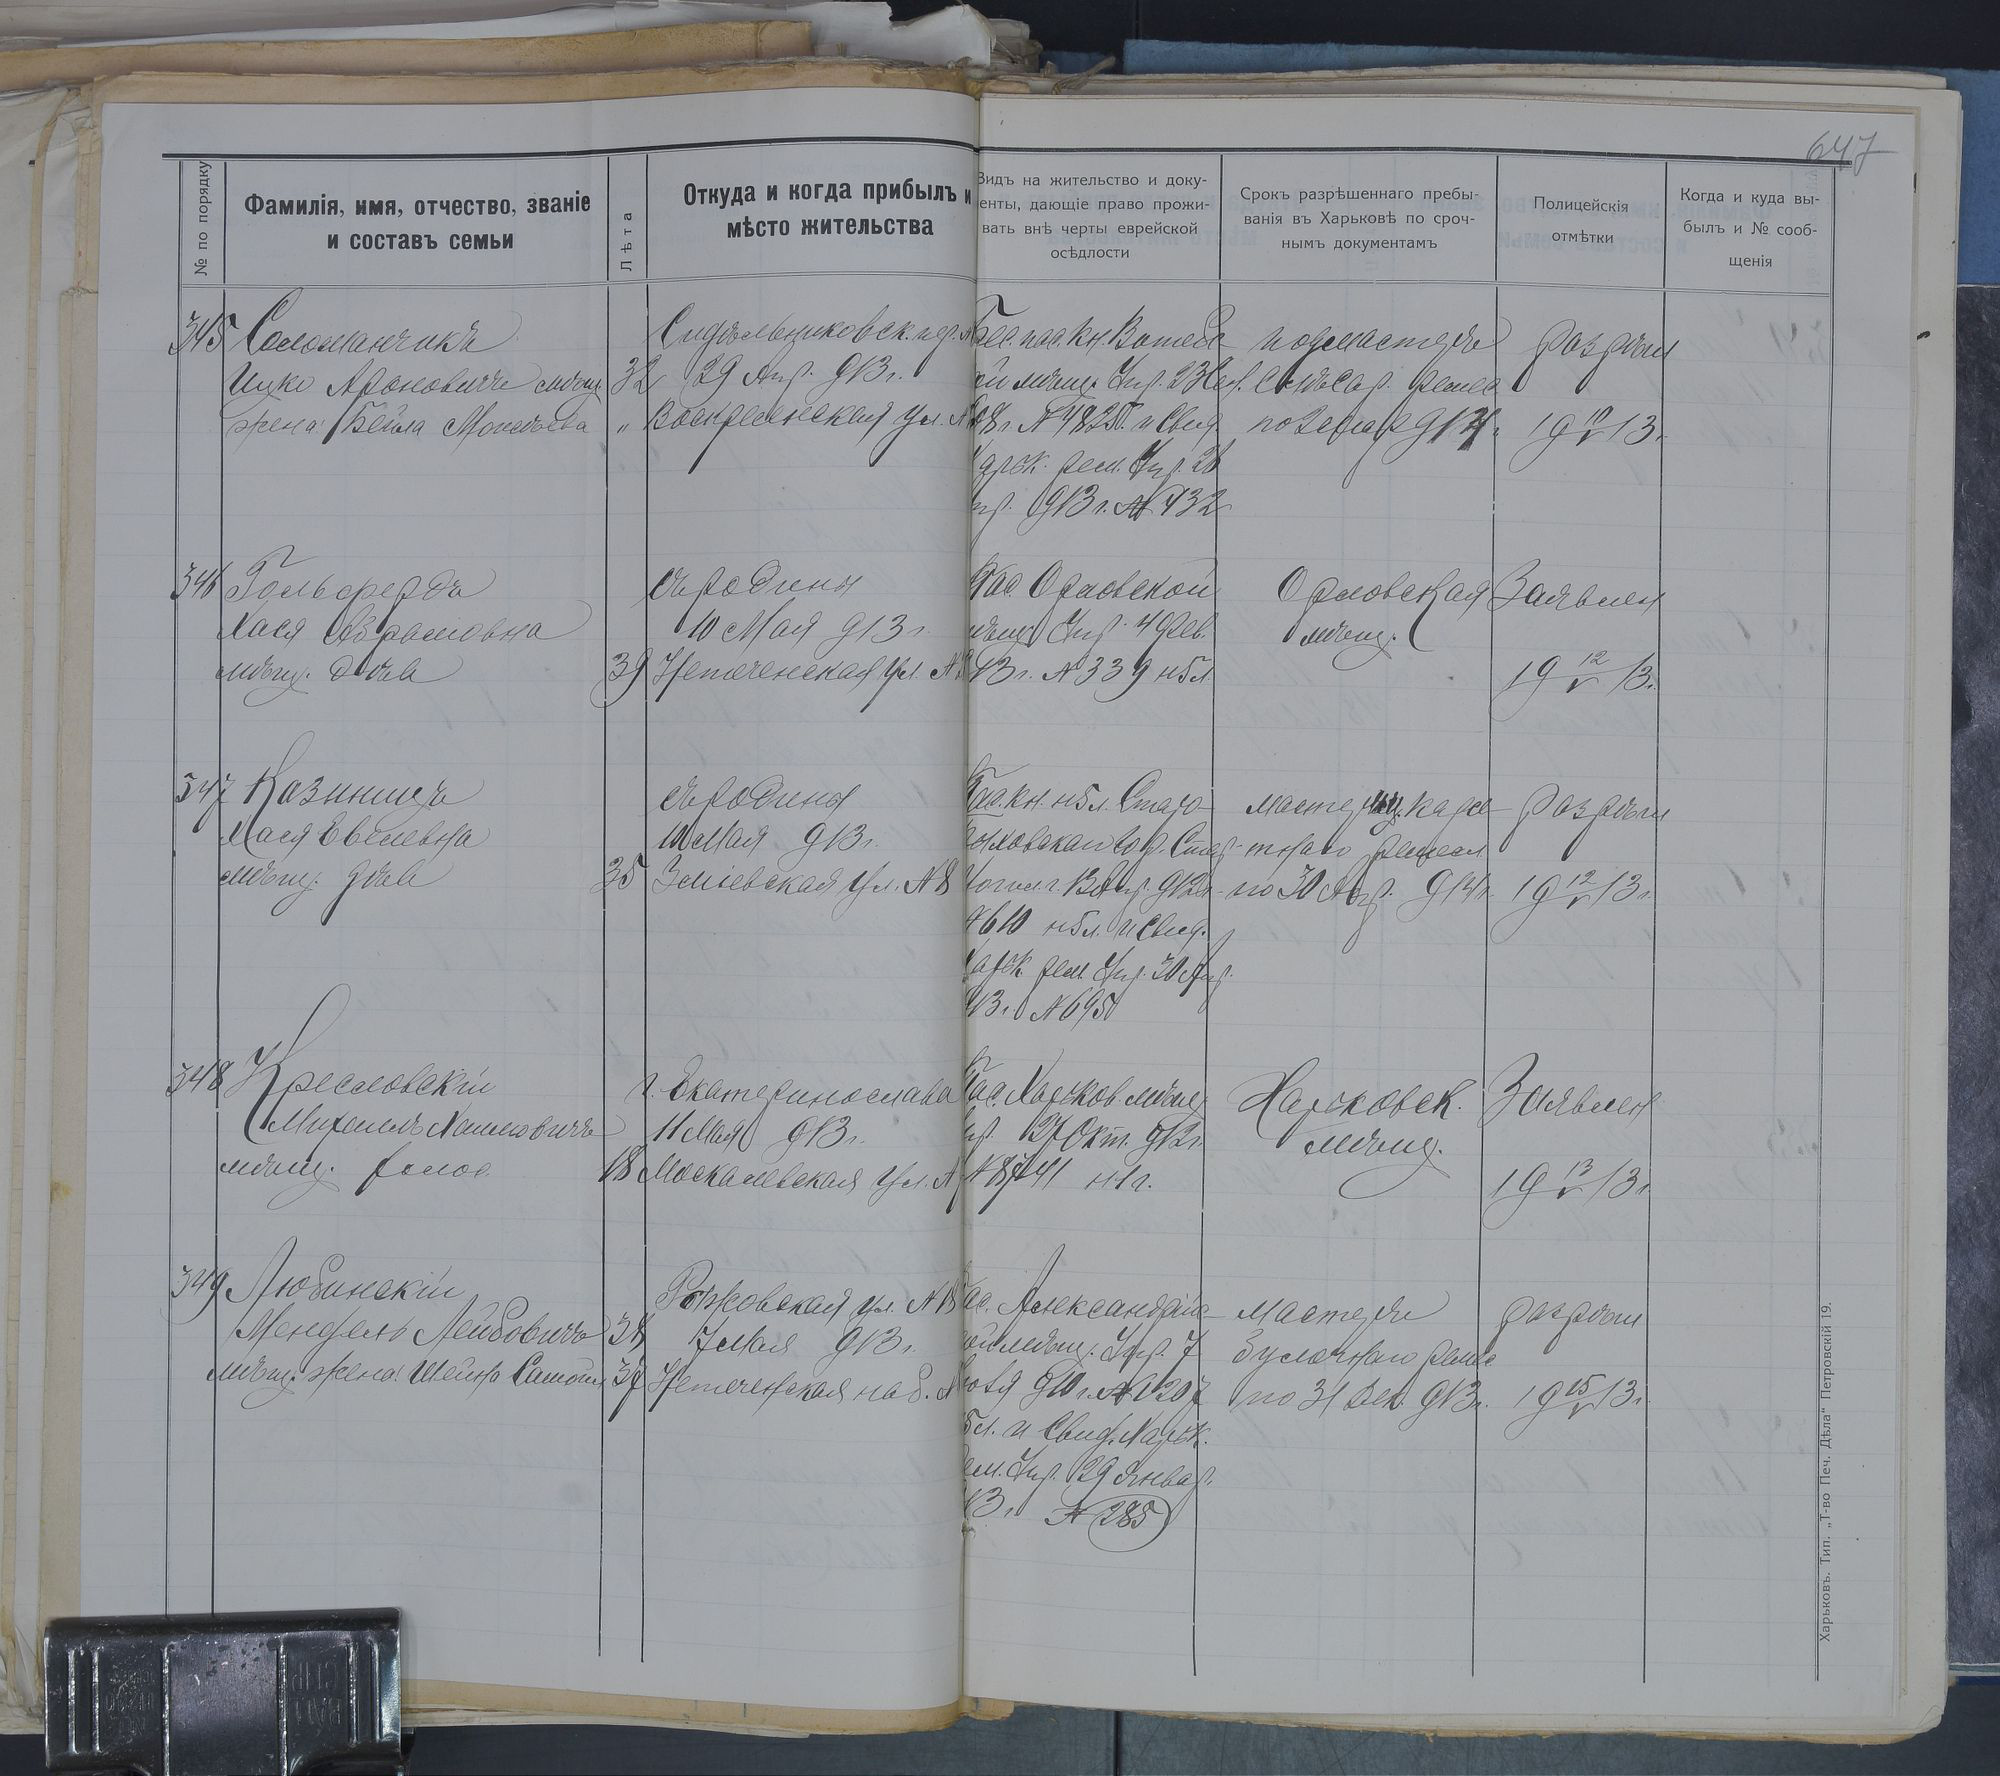 647
№ по порядку
Фамилія, имя, отчество, званіе
и составъ семьи
Лѣта
Откуда и когда прибылъ и
мѣсто жительства
Видъ на жительство и доку-
енты, дающіе право прожи-
вать внѣ черты еврейской
осѣдлости
Срокъ разрѣшеннаго пребы-
ванія въ Харьковѣ по сроч-
нымъ документамъ
Полицейскія
отмѣтки
Когда и куда вы-
былъ и № сооб-
щенія
345 Соломанчикъ
Ицко Ароновичъ мѣщ. 32
жена: Бейла Мовшева "
29 Апр. 913 г.
Воскресенская ул. №
Бес. пас. кн. Витебс
ой мѣщ. Упр. 2
08 г. № 4825 и Свид
Харьк. рем. Упр. 26
пр. 913 г. № 432
подмастерье
по 914 г.
разрѣш
19 10/V 13 г.
346 Гольфердъ
Хася Абрамовна
мѣщ. дѣв 39
съ родины
10 Мая 913 г.
Нетеченская ул. №
Пас. Орловской
мѣщ. Упр. 4 Фев.
913 г. № 339 нбл
Орловская
мѣщ.
Заявлен
19 12/V 13 г.
347 Казиницъ
Мася Евелевна
мѣщ. дѣв 35
съ родины
10 Мая 913 г.
Зміевская ул. № 8
Пас. кн. нбл. Старо
13 Апр. 912 г.
№ 610 нбл. и Свид.
Харьк. рем. Упр. 30 Апр.
913 г. № 695
мастериц. корсе
тнаго ремесл
по 30 Апр. 914 г.
разрѣш
19 12/V 13 г.
348 Кресловскій
Михаилъ Хаимовичъ
мѣщ. холос. 18
г. Екатеринослава
11 Мая 913 г.
Москалевская ул. №
Пас. Харьков мѣщ
пр. 27 Окт. 912 г.
№ 8741 н 1 г.
Харьковск.
мѣщ.
Заявлен
19 13/V 13 г.
349 Любинскій
Мендель Лейбовичъ 38
мѣщ. жена: Шейна Самойл 37
№ 18
7 Мая 913 г.
Нетеченская наб. №
ас. Александрійс
ой мѣщ. Упр. 7
910 г. № 1207
бл. и Свид. Харьк.
ем. Упр. 29 Январ.
913 г. № 285
мастеръ
булочнаго ремес
по 31 Дек. 913 г.
разрѣш
19 15/V 13 г.
Харьковъ. Тип. „Т-во Печ. Дѣла“ Петровскій 19.